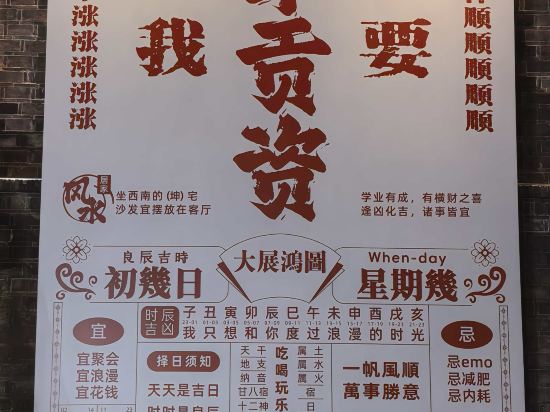 涨涨涨涨涨
我 要
贡
资
顺顺顺顺顺
居家
风水
坐西南的(坤)宅
沙发宜摆放在客厅
学业有成，有横财之喜
逢凶化吉，诸事皆宜
良辰吉時
初幾日
大展鴻圖
When-day
星期幾
时辰
吉凶
子 丑 寅 卯 辰 巳 午 未 申 酉 戌 亥
23-01 01-03 03-05 05-07 07-09 09-11 11-13 13-15 15-17 17-19 19-21 21-23
我 只 想 和 你 度 过 浪 漫 的 时 光
宜
宜聚会
宜浪漫
宜花钱
择日须知
天天是吉日
时时是良辰
天干
地支
纳音
廿八宿
十二神
吃喝玩乐
属土
属水
属火
宿
日
一帆風順
萬事勝意
忌
忌emo
忌减肥
忌内耗